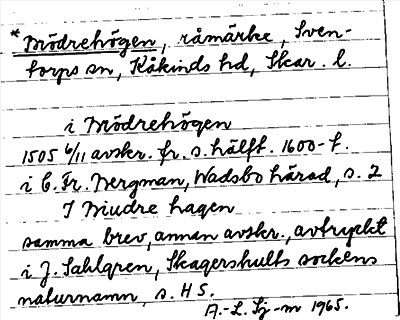 *Mödrehögen, råmärke, Sven-
torps sn, Kåkinds hd, Skar. l.
i Mödrehögen
1505 6/11 avskr. fr. s. hälft. 1600-t.
i C. Fr. Bergman, Wadsbo härad, s. 2
I Miudre hagen
samma brev, annan avskr., avtryckt
i J. Sahlgren, Skagershults sockens
naturnamn, s. H S.
A.-L. Sj-m 1965.